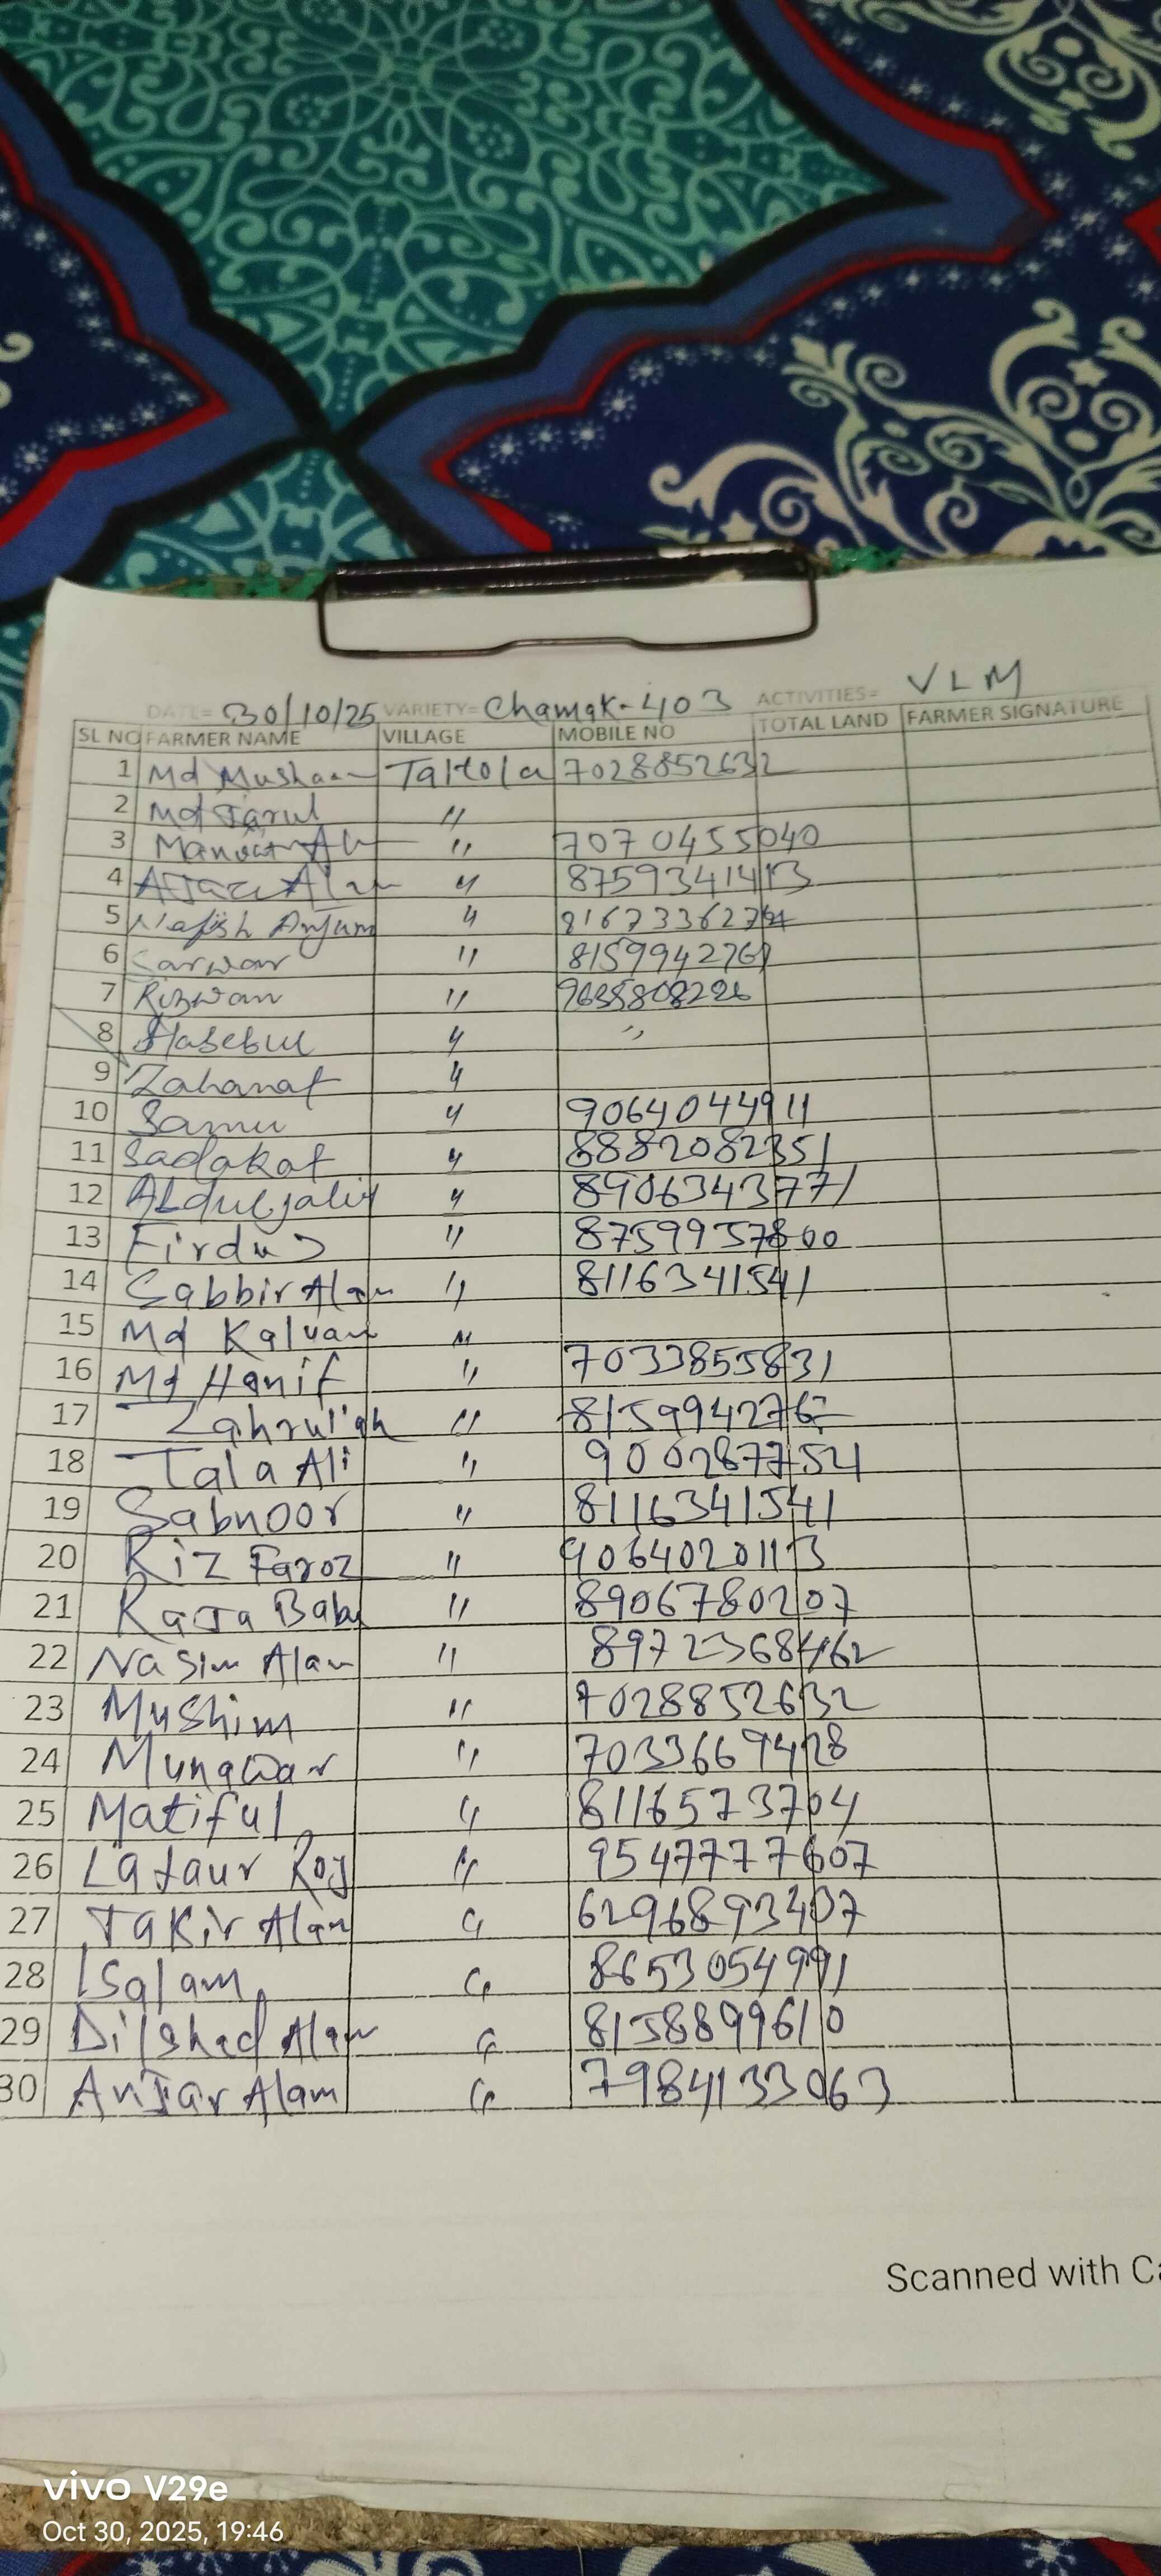 DATE= 30/10/25 VARIETY= Chamak-403 ACTIVITIES= VLM
SL NO FARMER NAME VILLAGE MOBILE NO TOTAL LAND FARMER SIGNATURE
1 Md Mushaan Taltola 7028852632
2 Md Tarul "
3 " 7070455040
4 Alam " 8759341413
5 Nafish Anjum "
6 Sarwar "
7 Rizwan " 9635808226
8 Hasebul " "
9 Zahanat "
10 Samu " 9064044911
11 Sadakat " 8882082351
12 Abdul jalil " 8906343771
13 Firdus " 8759957800
14 Sabbir Alam " 8116341541
15 Md Kaluan "
16 Md Hanif " 7033855831
17 "
18 Tala Ali " 9002877541
19 Sabnoor " 8116341541
20 Riz Faroz " 9064020113
21 Raja Babu " 8906780207
22 Nasim Alam " 8972368462
23 Mushim " 7028852632
24 Munawar " 7033669428
25 Matiful " 8116573704
26 Lataur Roy " 9547777607
27 Takir Alam " 6296893407
28 ISalam " 8653054991
29 Dilshad Alam " 8158899610
30 AnJar Alam " 7984133063
Scanned with Ca
vivo V29e
Oct 30, 2025, 19:46